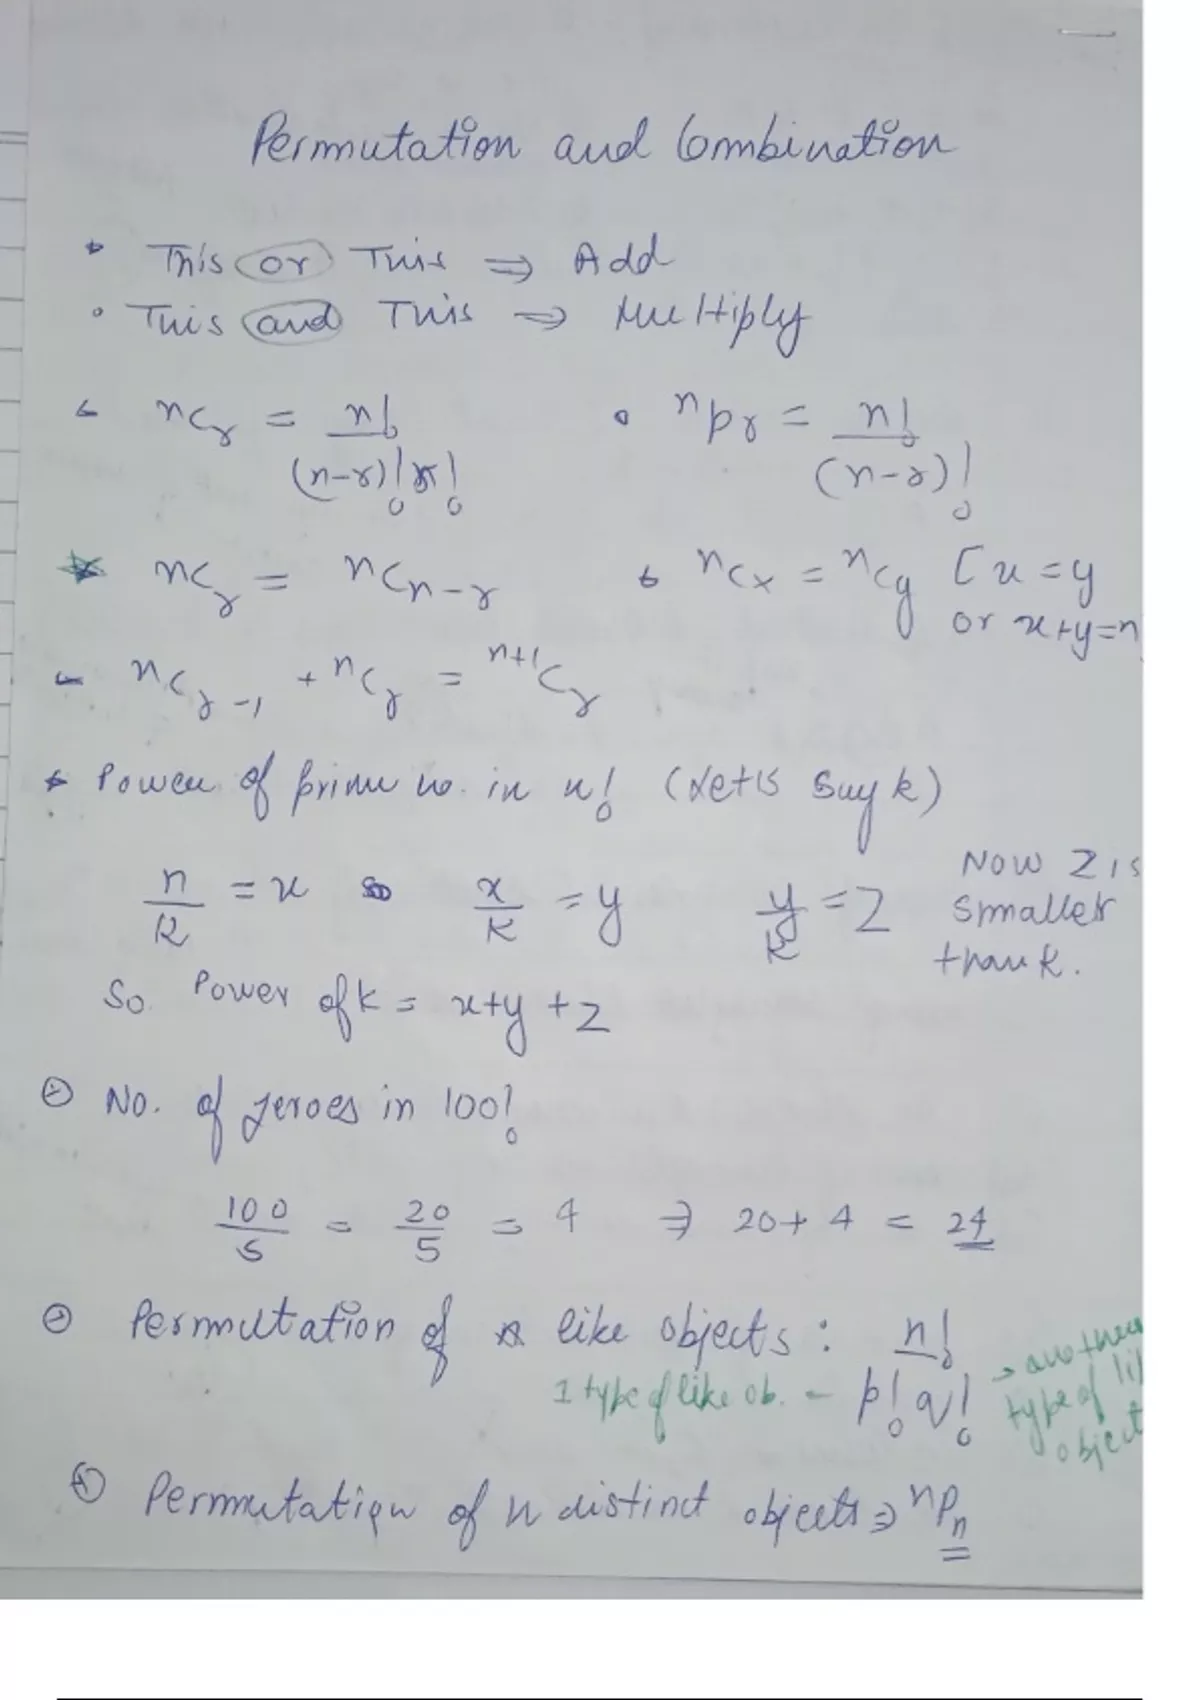 Permutation and Combination
* This or This ⇒ Add
• This and This ⇒ Multiply
ⁿCᵣ = n! / (n-r)! r! • ⁿpᵣ = n! / (n-r)!
* ⁿCᵣ = ⁿCₙ₋ᵣ ⁿCₓ = ⁿCy [x = y
or x+y=n
ⁿCᵣ₋₁ + ⁿCᵣ = ⁿ⁺¹Cᵣ
* Power of prime no. in n! (Let's say k)
n/k = x so x/k = y y/k = z Now z is
smaller
than k.
So Power of k = x+y+z
No. of zeroes in 100!
100/5 = 20/5 = 4 ⇒ 20+4 = 24
Permutation of like objects: n! / p! q!
1 type of like ob. - → another
type of
object
Permutation of n distinct objects ⇒ ⁿPₙ